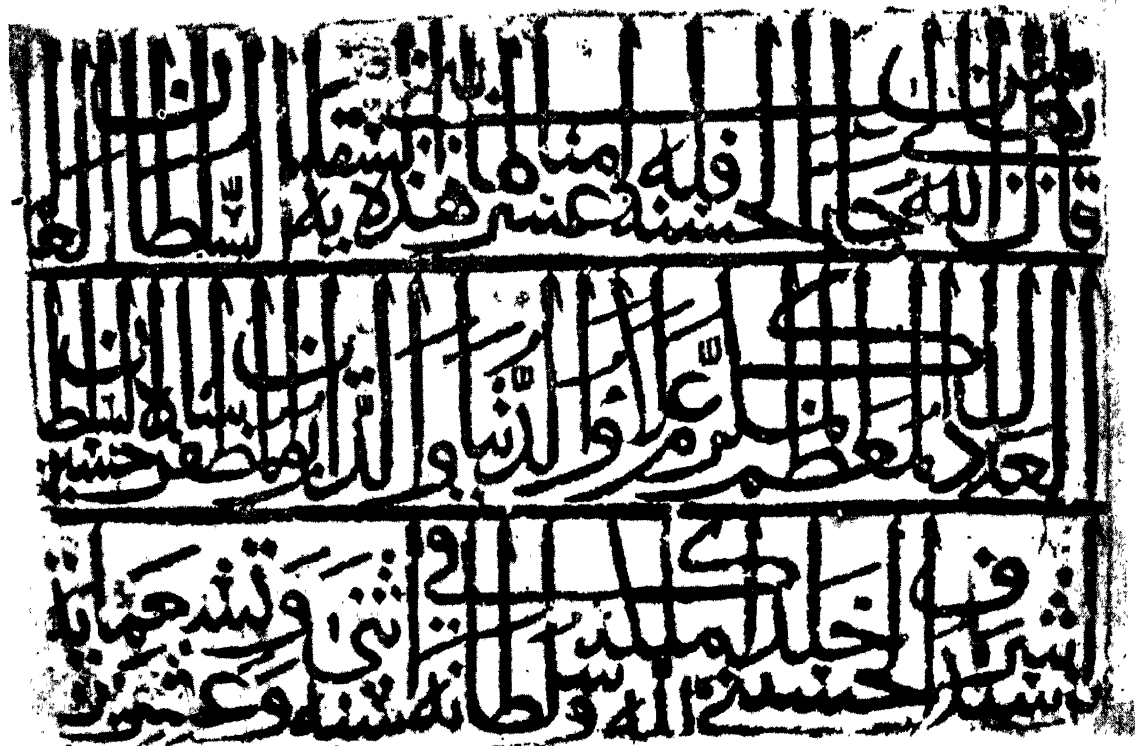 قال الله تعالى من جاء بالحسنة فله عشر امثالها بنى هذه السقاية السلطان
المعظم المكرم علاء الدنيا والدين ابو المظفر حسين شاه السلطان
سيد اشرف الحسيني خلد الله ملكه وسلطانه في سنة اثنى وعشرين وتسعمائة